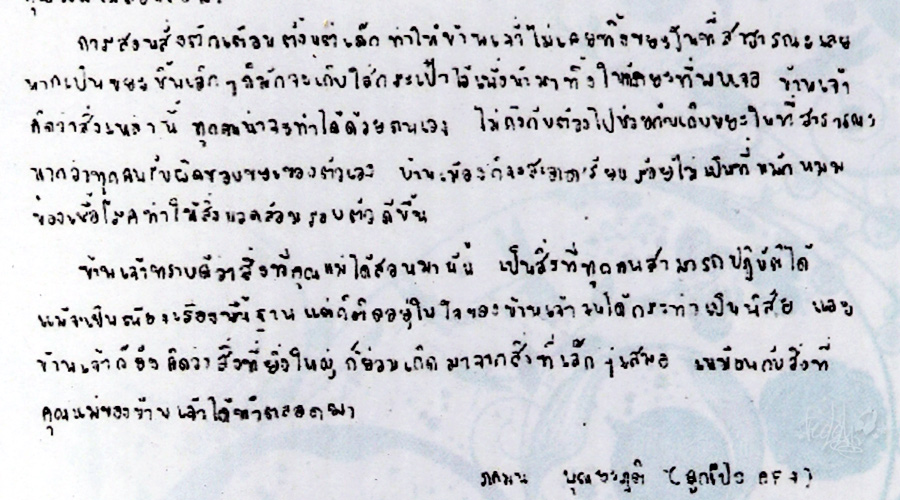 การสั่งสอนตักเตือนตั้งแต่เล็ก ทำให้ข้าพเจ้าไม่เคยทิ้งของในที่สาธารณะเลย
หากเป็นขยะชิ้นเล็กๆก็มักจะเก็บใส่กระเป๋าไว้แล้วนำมาทิ้งในถังขยะที่พบเจอ ข้าพเจ้า
คิดว่าสิ่งเหล่านี้ ทุกคนน่าจะทำได้ด้วยตนเอง ไม่ถึงกับต้องไปช่วยกันเก็บขยะในที่สาธารณะ
หากว่าทุกคนรับผิดชอบขยะของตัวเอง บ้านเมืองก็จะสะอาดเรียบร้อยไม่เป็นที่หมักหมม
ของเชื้อโรค ทำให้สิ่งแวดล้อมรอบตัวดีขึ้น
ข้าพเจ้าทราบดีว่าสิ่งที่คุณแม่ได้สอนมานั้น เป็นสิ่งที่ทุกคนสามารถปฏิบัติได้
แม้จะเป็นเพียงเรื่องพื้นฐาน แต่ก็ติดอยู่ในใจของข้าพเจ้า จนได้กระทำเป็นนิสัย และ
ข้าพเจ้าก็ยังคิดว่าสิ่งที่ยิ่งใหญ่ ก็ย่อมเกิดมาจากสิ่งที่เล็กๆเสมอ เหมือนกับสิ่งที่
คุณแม่ของข้าพเจ้าได้ทำตลอดมา